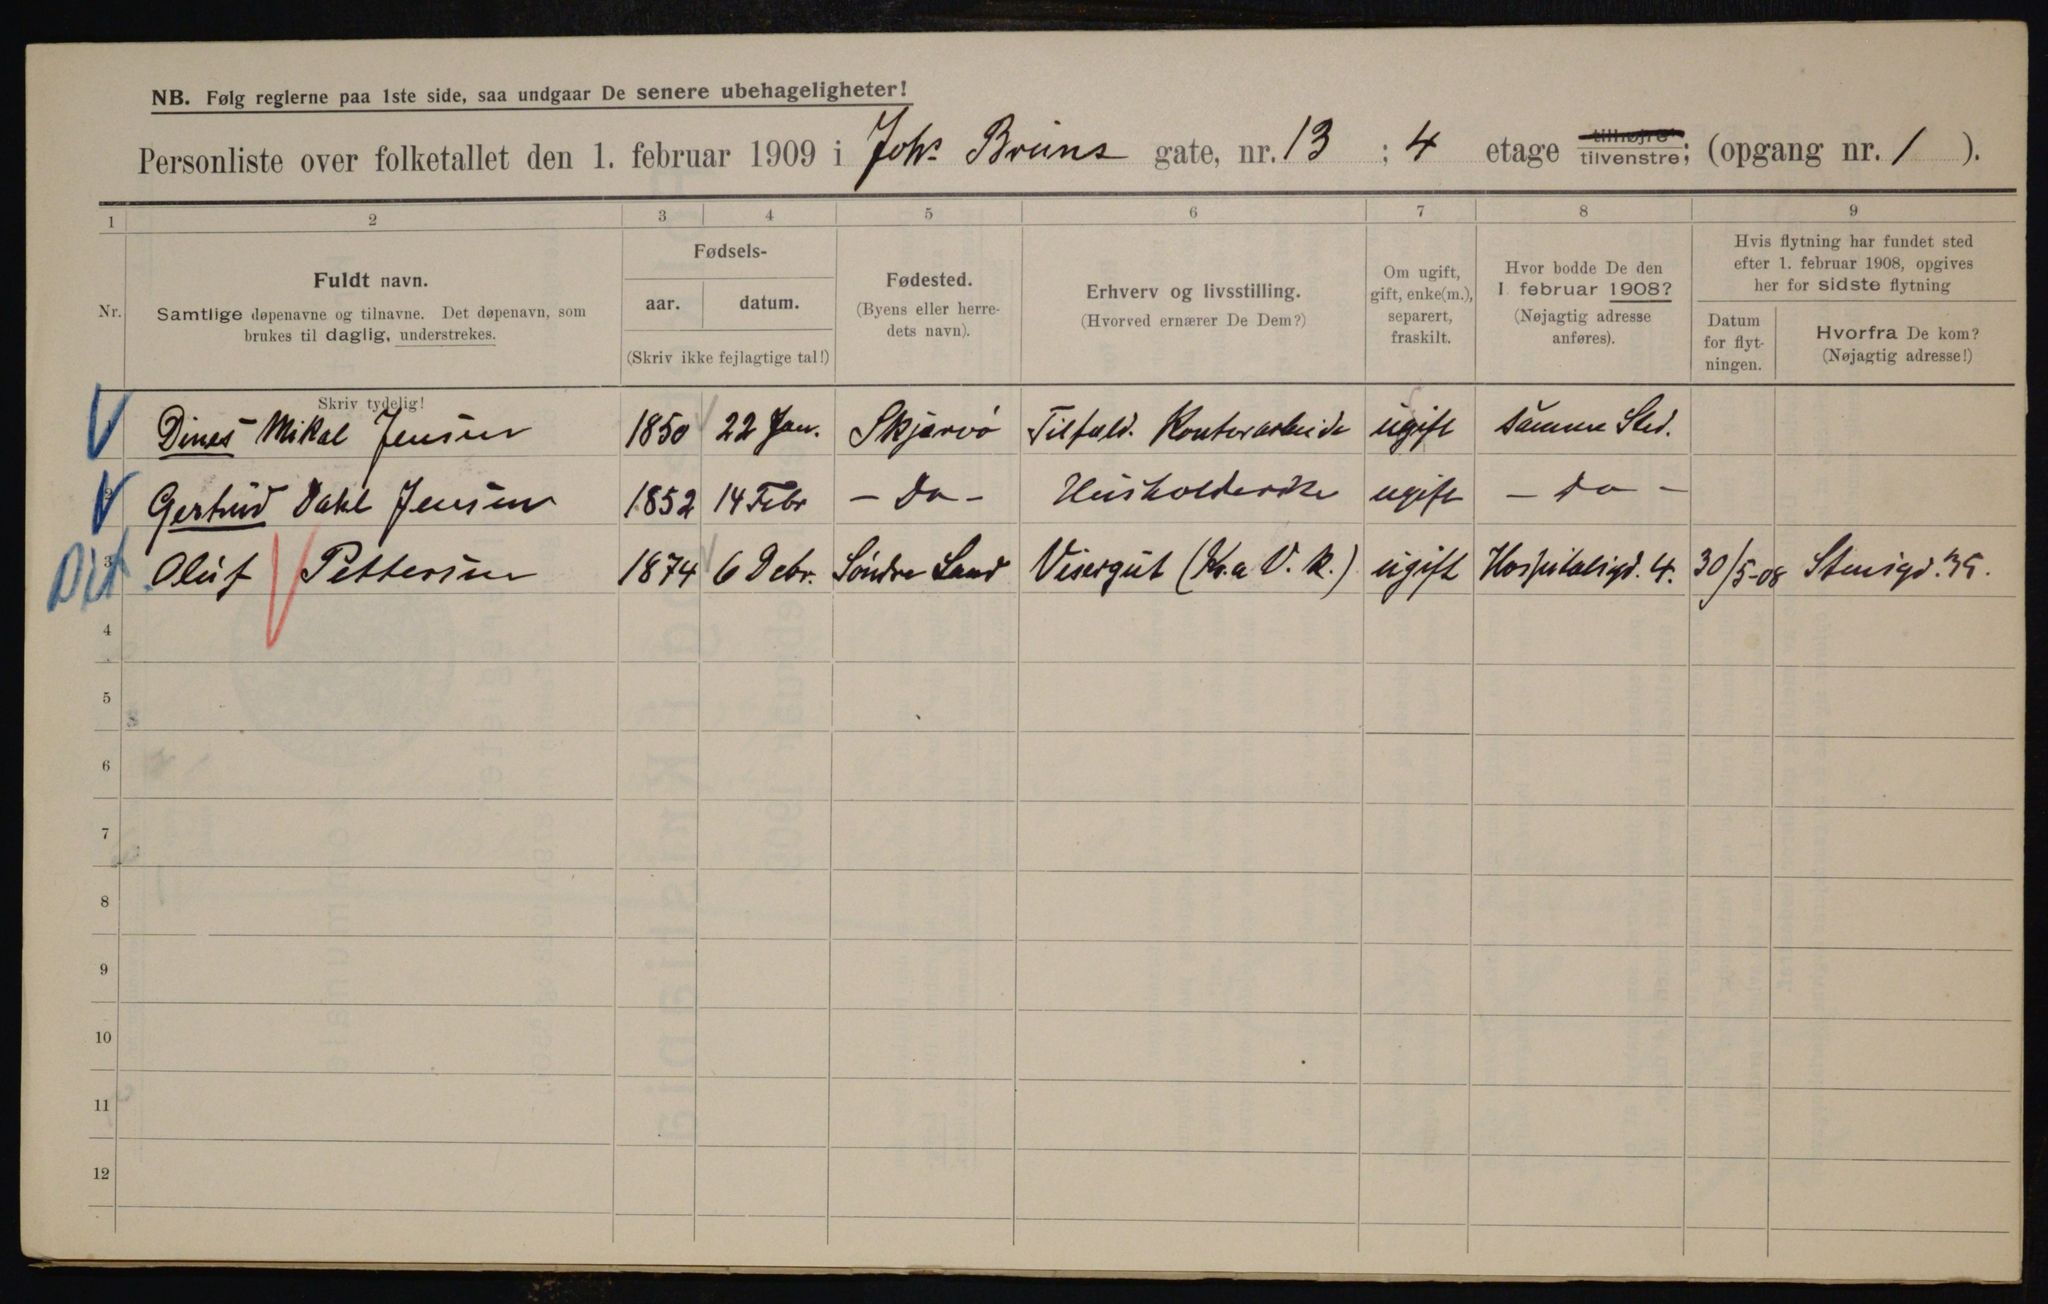 NB. Følg reglerne paa 1ste side, saa undgaar De senere ubehageligheter!
Personliste over folketallet den 1. februar 1909 i Johs Bruns gate, nr. 13 ; 4 etage tilhøjre tilvenstre; (opgang nr. 1 ).
1 2 3 4 5 6 7 8 9
Nr.
Fuldt navn.
Samtlige døpenavne og tilnavne. Det døpenavn, som
brukes til daglig, understrekes.
Fødsels-
aar. datum.
(Skriv ikke fejlagtige tal!)
Fødested.
(Byens eller herre-
dets navn).
Erhverv og livsstilling.
(Hvorved ernærer De Dem?)
Om ugift,
gift, enke(m.),
separert,
fraskilt.
Hvor bodde De den
1. februar 1908?
(Nøjagtig adresse
anføres).
Hvis flytning har fundet sted
efter 1. februar 1908, opgives
her for sidste flytning
Datum
for flyt-
ningen.
Hvorfra De kom?
(Nøjagtig adresse!)
Skriv tydelig!
Dines Mikal Jensen 1850 22 Jan. Skjærvö Tilfæld. Kontorarbeide ugift samme Sted.
2 Gertrud Dahl Jensen 1852 14 Febr - Do - Husholderske ugift - do -
3 Oluf Pettersen 1874 6 Debr. Söndre Land Visergut (Kr.a V. k.) ugift Hospitalsgd. 4. 30/5-08 Stensgd. 35.
4
5
6
7
8
9
10
11
12